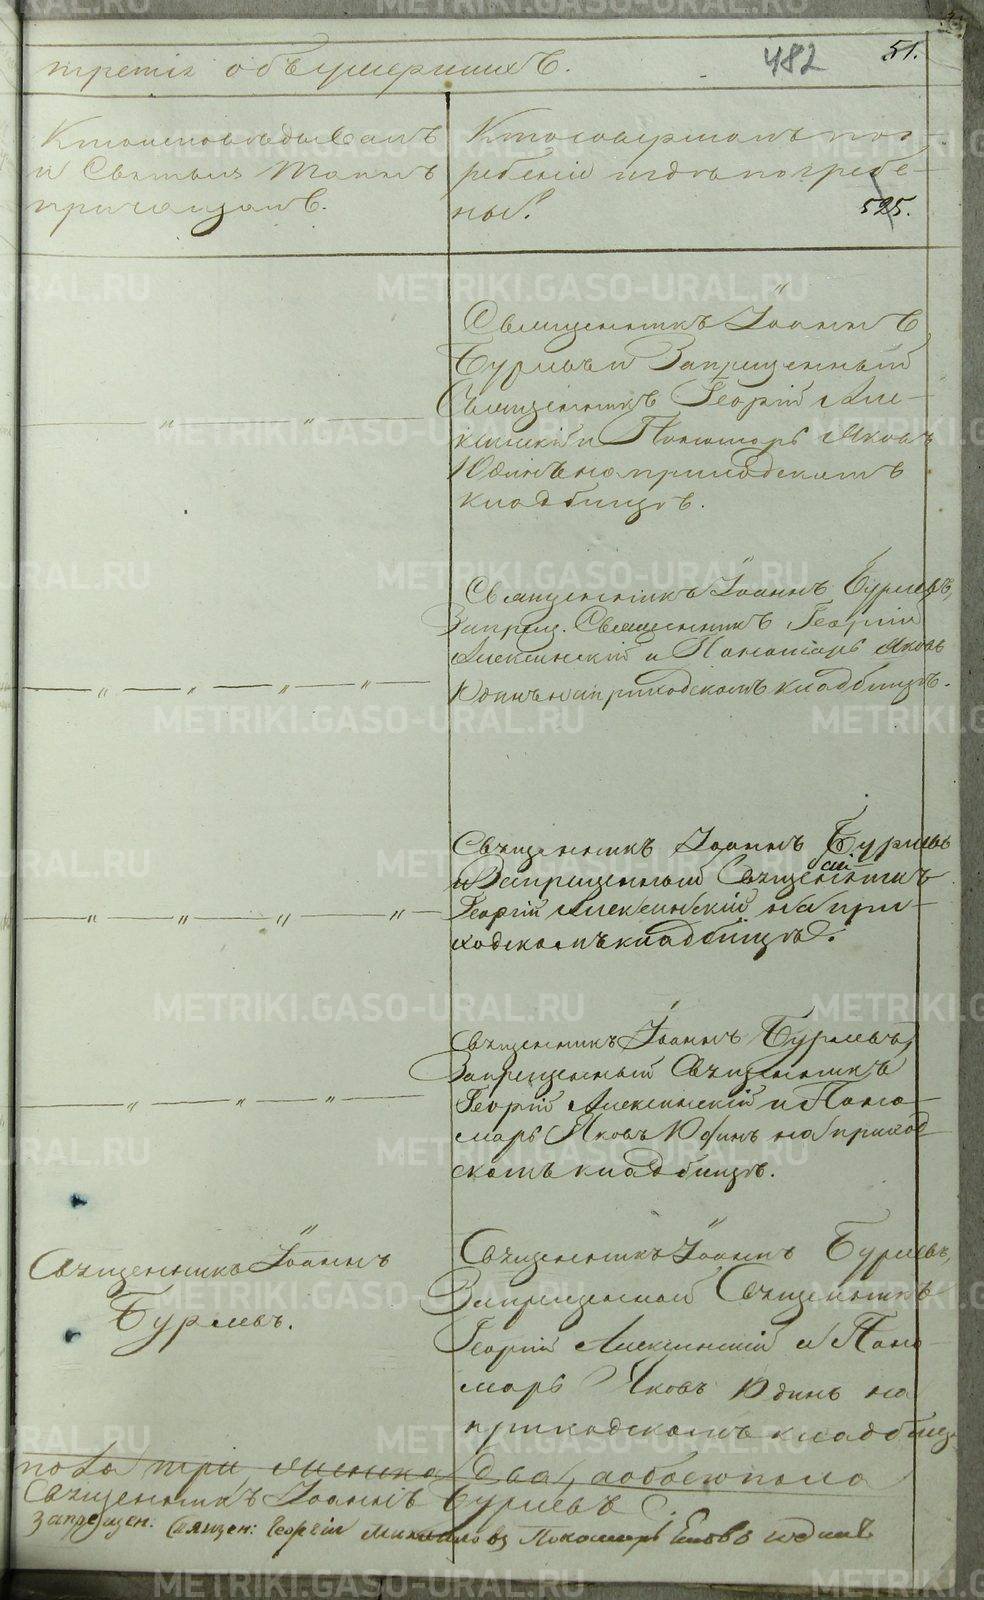 третія объ умершихъ.
482
51.
Кто исповѣдывалъ
и Святыхъ Таинъ
причащалъ.
Кто совершалъ пог-
ребеніе и гдѣ погребе-
ны.
525.
Священникъ Іоаннъ
Бурмѣвъ и Запрещенный
Священникъ Георгій Але-
ксинскій и Пономарь Яковъ
Юдинъ на приходскомъ
кладбищѣ.
Священникъ Іоаннъ
Запрещ. Священникъ Георгій
Алексинскій и Пономарь Яковъ
Юдинъ на приходскомъ кладбищѣ.
Священникъ Іоаннъ
и Запрещенный Священникъ
Георгій Алексинскій на при-
ходскомъ кладбищѣ.
Священникъ Іоаннъ
Запрещенный Священникъ
Георгій Алексинскій и Поно-
марь Яковъ Юдинъ на приход-
скомъ кладбищѣ.
Священникъ Іоаннъ
Священникъ Іоаннъ
Запрещенный Священникъ
Георгій Алексинскій и Поно-
марь Яковъ Юдинъ на
приходскомъ кладбищ.
пола три, женска два, а обоего пола
Священникъ Іоаннъ
Запрещен. Священ: Георгій Пономарь Юдинъ
METRIKI.GASO-URAL.RU